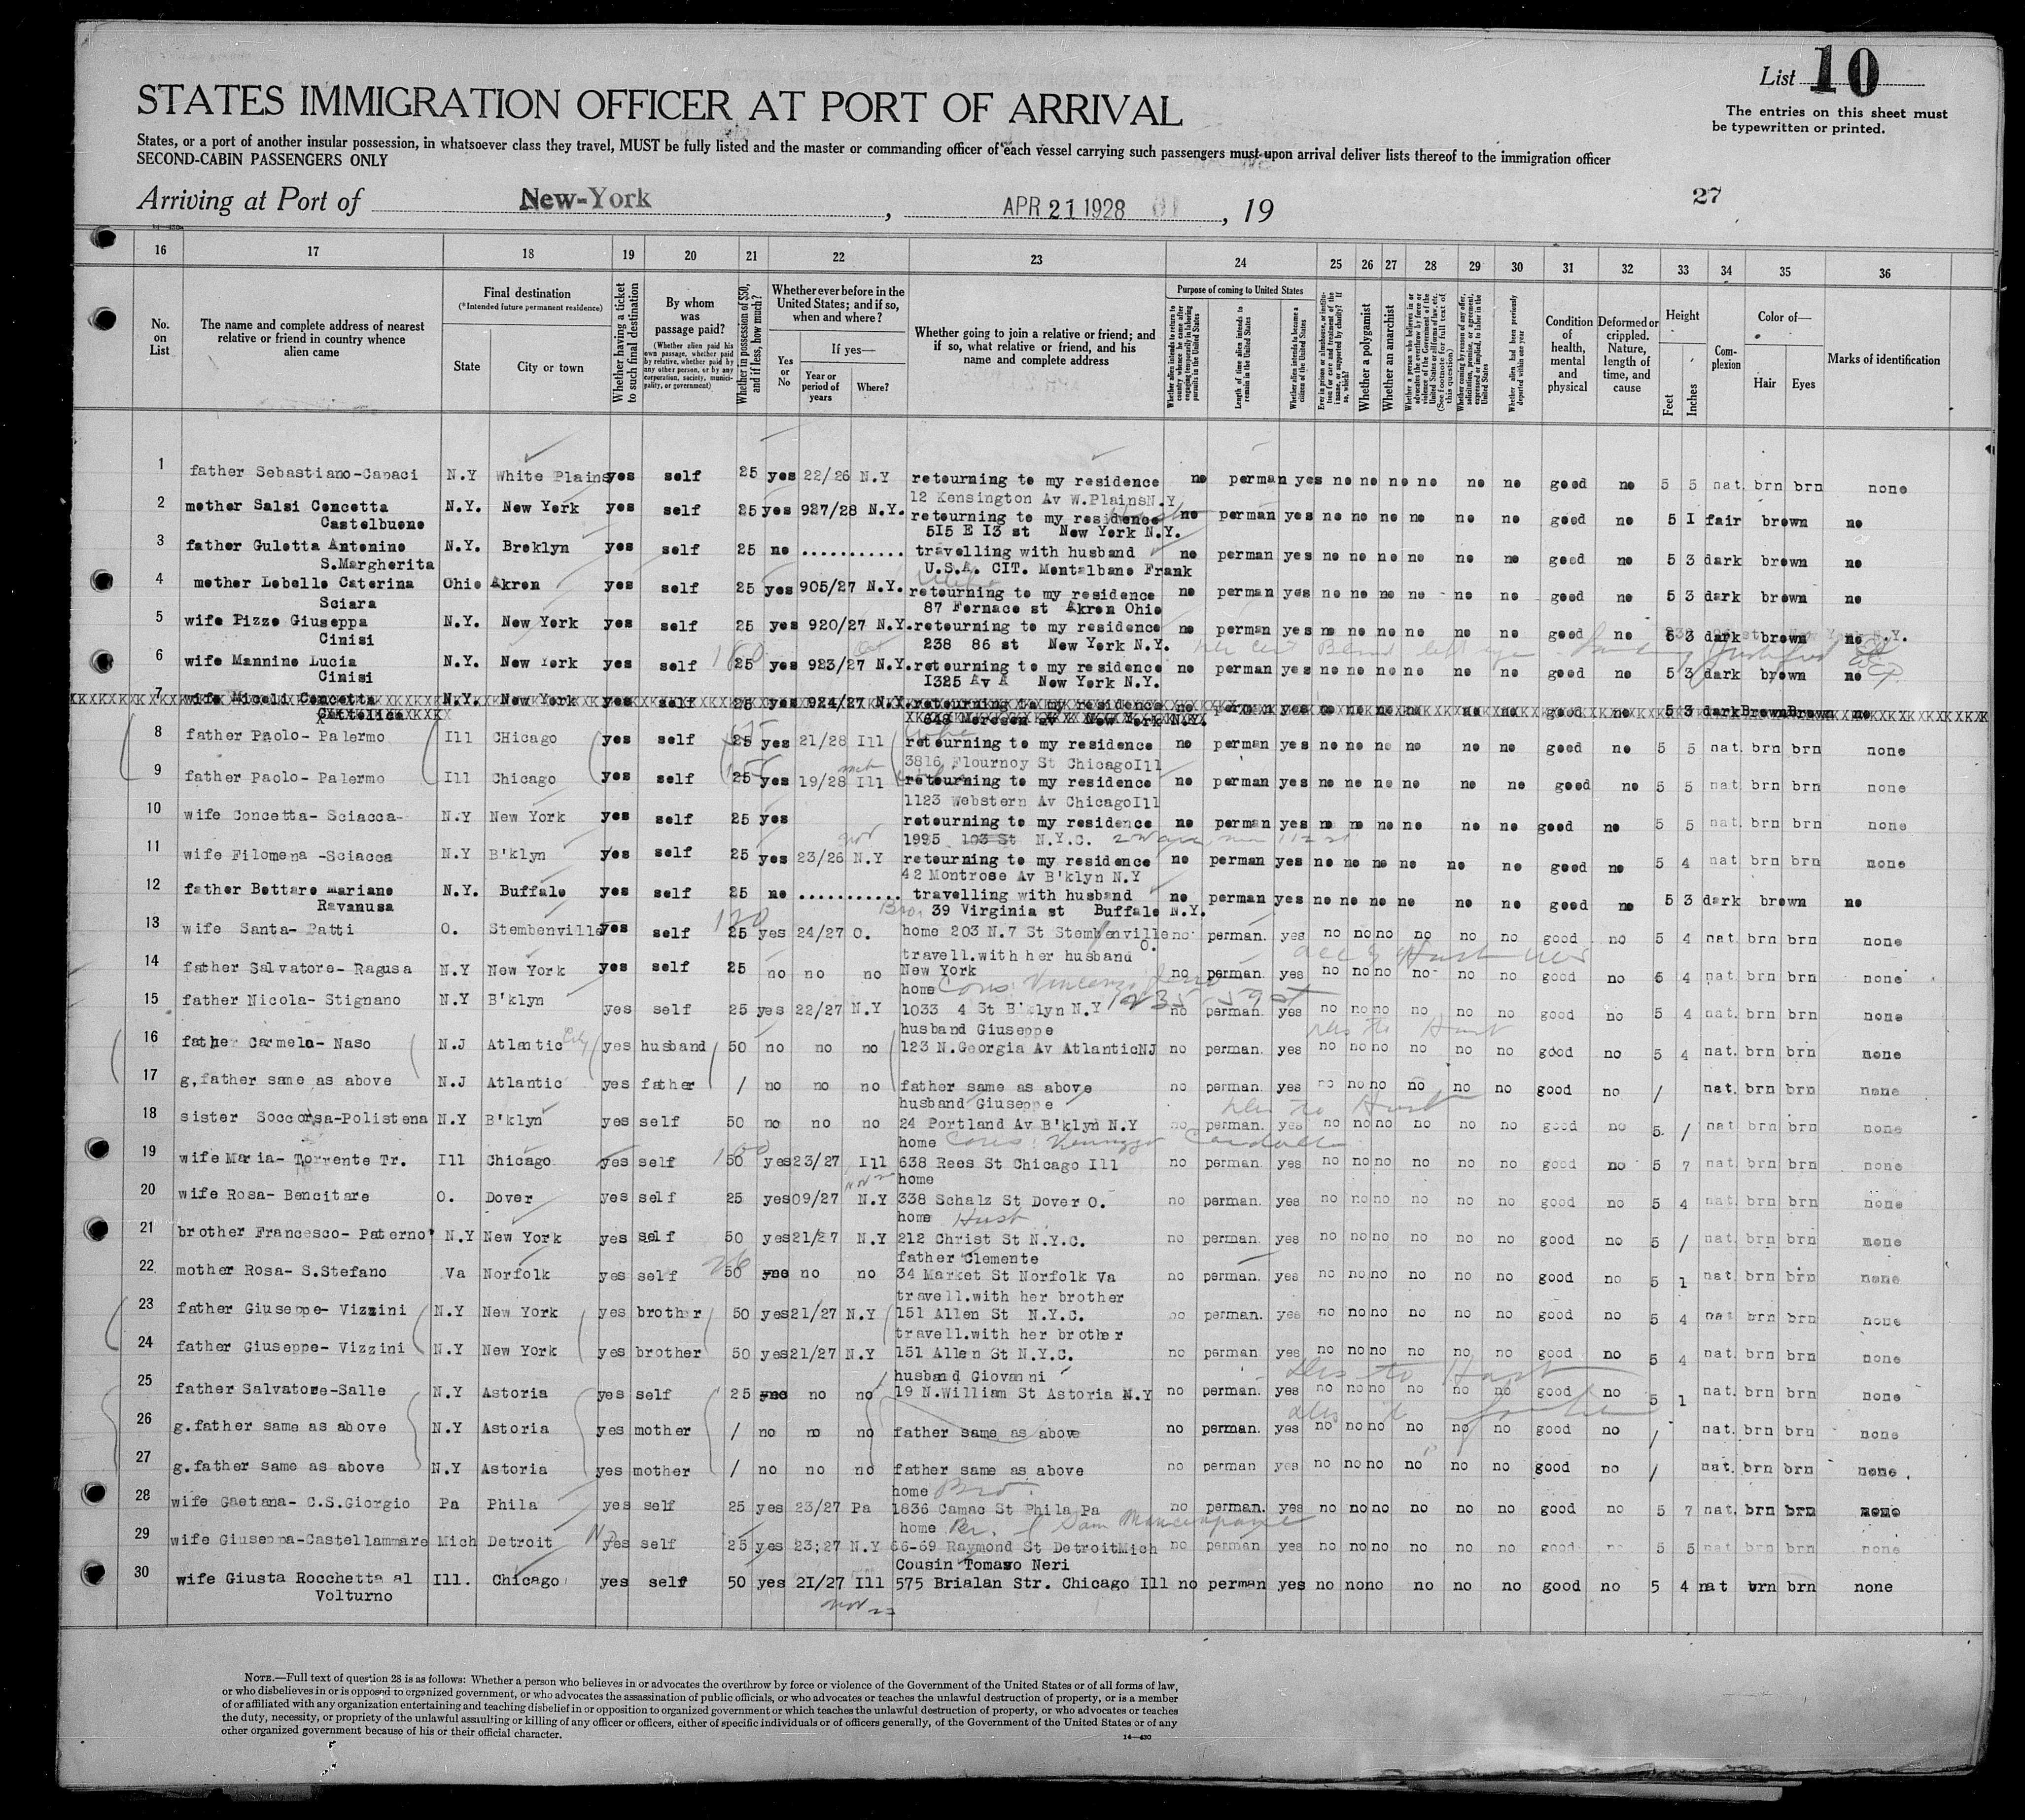 List 10
The entries on this sheet must
be typewritten or printed.
STATES IMMIGRATION OFFICER AT PORT OF ARRIVAL
States, or a port of another insular possession, in whatsoever class they travel, MUST be fully listed and the master or commanding officer of each vessel carrying such passengers must upon arrival deliver lists thereof to the immigration officer
SECOND-CABIN PASSENGERS ONLY
27
Arriving at Port of New-York, APR 21 1928, 19
16 17 18 19 20 21 22 23 24 25 26 27 28 29 30 31 32 33 34 35 36
No. on List
The name and complete address of nearest relative or friend in country whence alien came
Final destination
(*Intended future permanent residence)
State
City or town
Whether having a ticket to such final destination
By whom was passage paid?
(Whether alien paid his own passage, whether paid by relative, whether paid by any other person, or by any corporation, society, municipality, or government)
Whether in possession of $50, and if less, how much?
Whether ever before in the United States; and if so, when and where?
Yes or No
If yes—
Year or period of years
Where?
Whether going to join a relative or friend; and if so, what relative or friend, and his name and complete address
Purpose of coming to United States
Whether alien intends to return to country whence he came after engaging temporarily in laboring pursuits in the United States
Length of time alien intends to remain in the United States
Whether alien intends to become a citizen of the United States
Ever in prison or almshouse, or institution for care and treatment of the insane, or supported by charity? If so, which?
Whether a polygamist
Whether an anarchist
Whether a person who believes in or advocates the overthrow by force or violence of the Government of the United States or all forms of law, etc. (See footnote for full text of this question)
Whether coming by reason of any offer, solicitation, promise, or agreement, expressed or implied, to labor in the United States
Whether alien had been previously deported within one year
Condition of health, mental and physical
Deformed or crippled. Nature, length of time, and cause
Height
Feet
Inches
Complexion
Color of—
Hair
Eyes
Marks of identification
1 father Sebastiano-Capaci N.Y White Plains yes self 25 yes 22/26 N.Y retourning to my residence no perman yes no no no no no no good no 5 5 nat. brn brn none
12 Kensington Av W.PlainsN.Y
2 mother Salsi Concetta N.Y. New York yes self 25 yes 927/28 N.Y. retourning to my residence no perman yes no no no no no no good no 5 I fair brown no
Castelbuono 515 E I3 st New York N.Y.
3 father Guletta Antonino N.Y. Broklyn yes self 25 no ........... travelling with husband no perman yes no no no no no no good no 5 3 dark brown no
S.Margherita U.S.A. CIT. Montalbano Frank
4 mother Lobello Caterina Ohio Akron yes self 25 yes 905/27 N.Y. retourning to my residence no perman yes no no no no no no good no 5 3 dark brown no
Sciara 87 Fornace st Akron Ohio
5 wife Pizzo Giuseppa N.Y. New York yes self 25 yes 920/27 N.Y. retourning to my residence no perman yes no no no no no no good no 5 3 dark brown no
Cinisi 238 86 st New York N.Y.
6 wife Mannino Lucia N.Y. New York yes self 25 yes 923/27 N.Y. retourning to my residence no perman yes no no no no no no good no 5 3 dark brown no
Cinisi I325 Av A New York N.Y.
7 wife Miceli Concetta N.Y. New York yes self 25 yes 924/27 N.Y. retourning to my residence no perman yes no no no no no no good no 5 3 dark Brown Brown no
New York N.Y.
8 father Paolo- Palermo Ill CHicago yes self 25 yes 21/28 Ill retourning to my residence no perman yes no no no no no no good no 5 5 nat. brn brn none
3816 Flournoy St ChicagoIll
9 father Paolo- Palermo Ill Chicago yes self 25 yes 19/28 Ill retourning to my residence no perman yes no no no no no no good no 5 5 nat. brn brn none
1123 Webstern Av ChicagoIll
10 wife Concetta- Sciacca- N.Y New York yes self 25 yes retourning to my residence no perman yes no no no no no no good no 5 5 nat. brn brn none
1995 103 St N.Y.C.
11 wife Filomena -Sciacca N.Y B'klyn yes self 25 yes 23/26 N.Y retourning to my residence no perman yes no no no no no no good no 5 4 nat brn brn none
42 Montrose Av B'klyn N.Y
12 father Bottaro Mariano N.Y. Buffalo yes self 25 no ........... travelling with husband no perman yes no no no no no no good no 5 3 dark brown no
Ravanusa Bro. 39 Virginia st Buffalo N.Y.
13 wife Santa- Patti O. Stembenville yes self 25 yes 24/27 O. home 203 N.7 St Stembenville O. no perman. yes no no no no no no good no 5 4 nat. brn brn none
travell.with her husband
14 father Salvatore- Ragusa N.Y New York yes self 25 no no no New York no perman. yes no no no no no no good no 5 4 nat. brn brn none
home Cons. Vincenzo
15 father Nicola- Stignano N.Y B'klyn yes self 25 yes 22/27 N.Y 1033 4 St B'klyn N.Y 1235 - 59 st no perman. yes no no no no no no good no 5 4 nat. brn brn none
husband Giuseppe
16 father Carmelo- Naso N.J Atlantic City yes husband 50 no no no 123 N.Georgia Av AtlanticNJ no perman. yes no no no no no no good no 5 4 nat. brn brn none
17 g,father same as above N.J Atlantic yes father / no no no father same as above no perman. yes no no no no no no good no / nat. brn brn none
husband Giuseppe
18 sister Soccorsa-Polistena N.Y B'klyn yes self 50 no no no 24 Portland Av B'klyn N.Y no perman. yes no no no no no no good no 5 / nat brn brn none
home
19 wife Maria- Torrente Tr. Ill Chicago yes self 50 yes 23/27 Ill 638 Rees St Chicago Ill no perman. yes no no no no no no good no 5 7 nat. brn brn none
home
20 wife Rosa- Bencitare O. Dover yes self 25 yes 09/27 N.Y 338 Schalz St Dover O. no perman. yes no no no no no no good no 5 4 nat. brn brn none
home Hust
21 brother Francesco- Paterno' N.Y New York yes self 50 yes 21/27 N.Y 212 Christ St N.Y.C. no perman. yes no no no no no no good no 5 / nat. brn brn none
father Clemente
22 mother Rosa- S.Stefano Va Norfolk yes self 50 no no 34 Market St Norfolk Va no perman. yes no no no no no no good no 5 1 nat. brn brn none
travell.with her brother
23 father Giuseppe- Vizzini N.Y New York yes brother 50 yes 21/27 N.Y 151 Allen St N.Y.C. no perman. yes no no no no no no good no 5 4 nat brn brn none
travell.with her brother
24 father Giuseppe- Vizzini N.Y New York yes brother 50 yes 21/27 N.Y 151 Allen St N.Y.C. no perman yes no no no no no no good no 5 4 nat. brn brn none
husband Giovanni
25 father Salvatore-Salle N.Y Astoria yes self 25 no no 19 N.William St Astoria N.Y no perman. yes no no no no no no good no 5 1 nat. brn brn none
26 g.father same as above N.Y Astoria yes mother / no no no father same as above no perman. yes no no no no no no good no / nat. brn brn none
27 g.father same as above N.Y Astoria yes mother / no no no father same as above no perman yes no no no no no no good no / nat. brn brn none
home Bro.
28 wife Gaetana- C.S.Giorgio Pa Phila yes self 25 yes 23/27 Pa 1836 Camac St Phila Pa no perman. yes no no no no no no good no 5 7 nat. brn brn none
home Br. Sam
29 wife Giuseppa-Castellammare Mich Detroit yes self 25 yes 23;27 N.Y 66-69 Raymond St DetroitMich no perman yes no no no no no no good no 5 5 nat. brn brn none
Cousin Tomaso Neri
30 wife Giusta Rocchetta al Ill. Chicago yes self 50 yes 2I/27 Ill 575 Brialan Str. Chicago Ill no perman yes no no no no no no good no 5 4 nat brn brn none
Volturno
NOTE.—Full text of question 28 is as follows: Whether a person who believes in or advocates the overthrow by force or violence of the Government of the United States or of all forms of law,
or who disbelieves in or is opposed to organized government, or who advocates the assassination of public officials, or who advocates or teaches the unlawful destruction of property, or is a member
of or affiliated with any organization entertaining and teaching disbelief in or opposition to organized government or which teaches the unlawful destruction of property, or who advocates or teaches
the duty, necessity, or propriety of the unlawful assaulting or killing of any officer or officers, either of specific individuals or of officers generally, of the Government of the United States or of any
other organized government because of his or their official character.
14—430